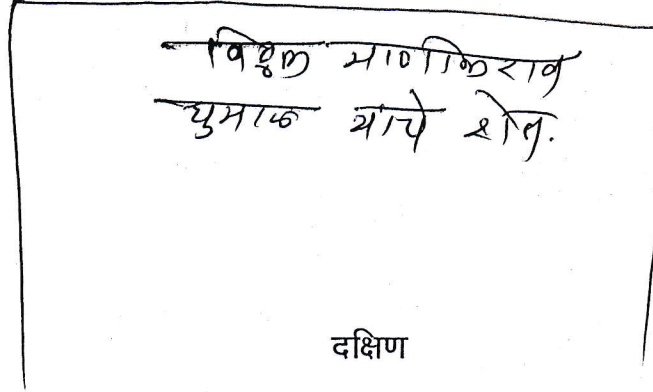 विठ्ठल माणिकराव
घुमाळ यांचे शेत.
दक्षिण